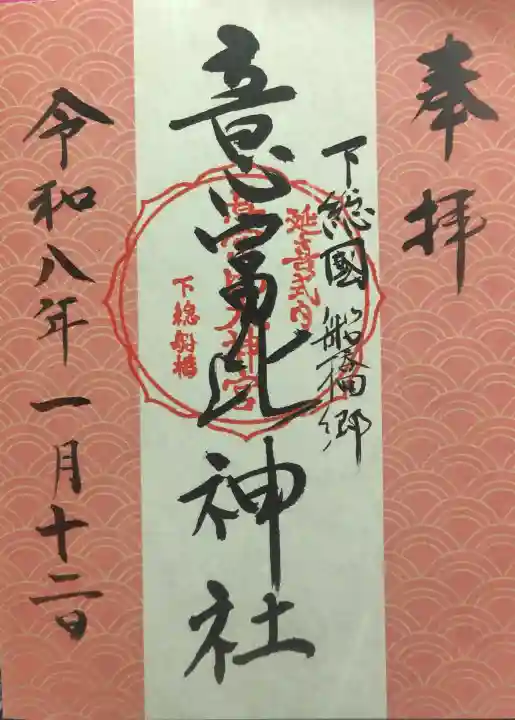 奉拝
下総國船橋郷
意富比神社
延喜式内
意富比神宮
下総船橋
令和八年一月十二日